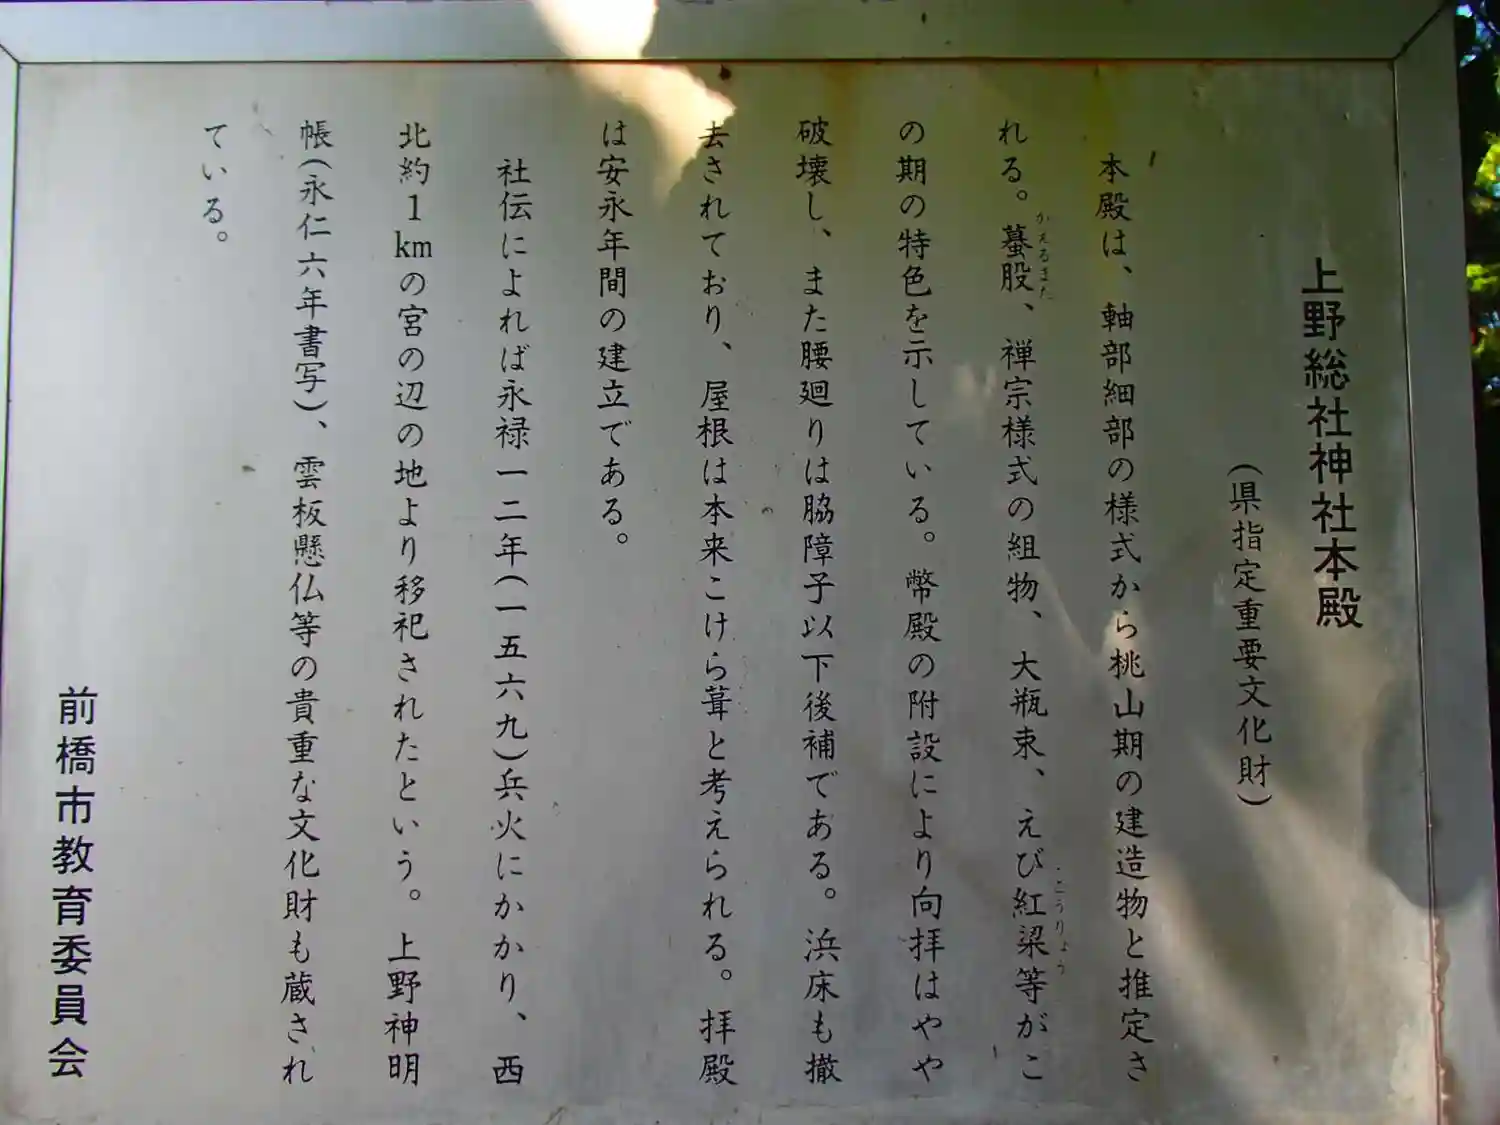 上野総社神社本殿
(県指定重要文化財)
本殿は、軸部細部の様式から桃山期の建造物と推定さ
れる。蟇股、禅宗様式の組物、大瓶束、えび紅梁等がこ
かえるまた
こうりょう
の期の特色を示している。幣殿の附設により向拝はやや
破壊し、また腰廻りは脇障子以下後補である。浜床も撤
去されており、屋根は本来こけら葺と考えられる。拝殿
は安永年間の建立である。
社伝によれば永禄一二年(一五六九)兵火にかかり、西
北約1kmの宮の辺の地より移祀されたという。上野神明
帳(永仁六年書写)、雲板懸仏等の貴重な文化財も蔵され
ている。
前橋市教育委員会